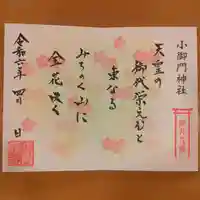 小御門神社
天皇の
御代栄えむと
東なる
みちのく山に
金花咲く
令和六年 四月 日